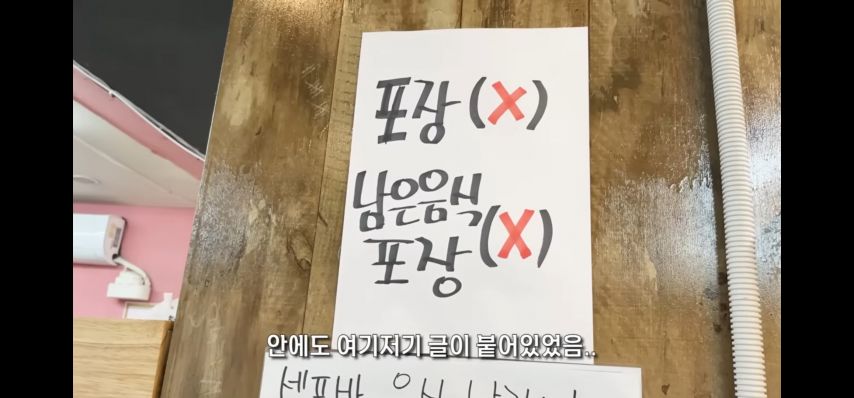 포장 (X)
남은음식
포장 (X)
안에도 여기저기 글이 붙어있었음..